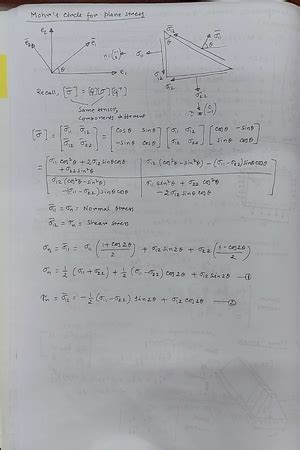 Mohr's Circle for plane stress
e₂
ē₂
ē₁
θ
e₁
Recall, [σ̄] = [Q][σ][Qᵀ]
Same tensor,
components different
[σ̄] = [σ̄₁₁ σ̄₁₂; σ̄₁₂ σ̄₂₂] = [Cosθ sinθ; -sinθ cosθ] [σ₁₁ σ₁₂; σ₁₂ σ₂₂] [cosθ -sinθ; sinθ cosθ]
= [σ₁₁ cos²θ + 2σ₁₂ sinθcosθ + σ₂₂ sin²θ | σ₁₂ (cos²θ - sin²θ) - (σ₁₁ - σ₂₂) sinθcosθ
σ₁₂ (cos²θ - sin²θ) - (σ₁₁ - σ₂₂) sinθcosθ | σ₁₁ sin²θ + σ₂₂ cos²θ - 2σ₁₂ sinθ cosθ]
σ̄₁₁ = σₙ = Normal stress
σ̄₁₂ = = Shear stress
= σ̄₁₁ = σ₁₁ (1 + cos2θ / 2) + σ₁₂ sin2θ + σ₂₂ (1 - cos2θ / 2)
σₙ = 1/2 (σ₁₁ + σ₂₂) + 1/2 (σ₁₁ - σ₂₂) cos2θ + σ₁₂ sin2θ - ①
= σ̄₁₂ = -1/2 (σ₁₁ - σ₂₂) sin2θ + σ₁₂ cos2θ - ②